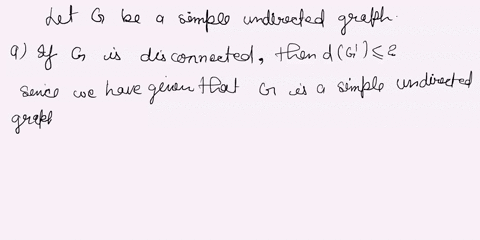 Let G be a simple undirected graph.
a) If G is disconnected, then d(G') ⩽ 2
Sence we have given that G is a simple undirected
graph